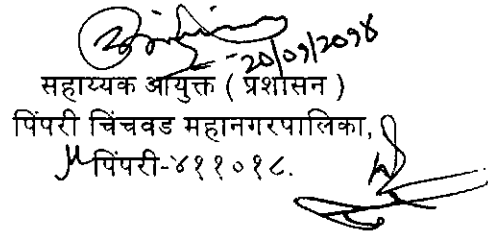 सहाय्यक आयुक्त ( प्रशासन )
पिंपरी चिंचवड महानगरपालिका,
पिंपरी-४११०१८.